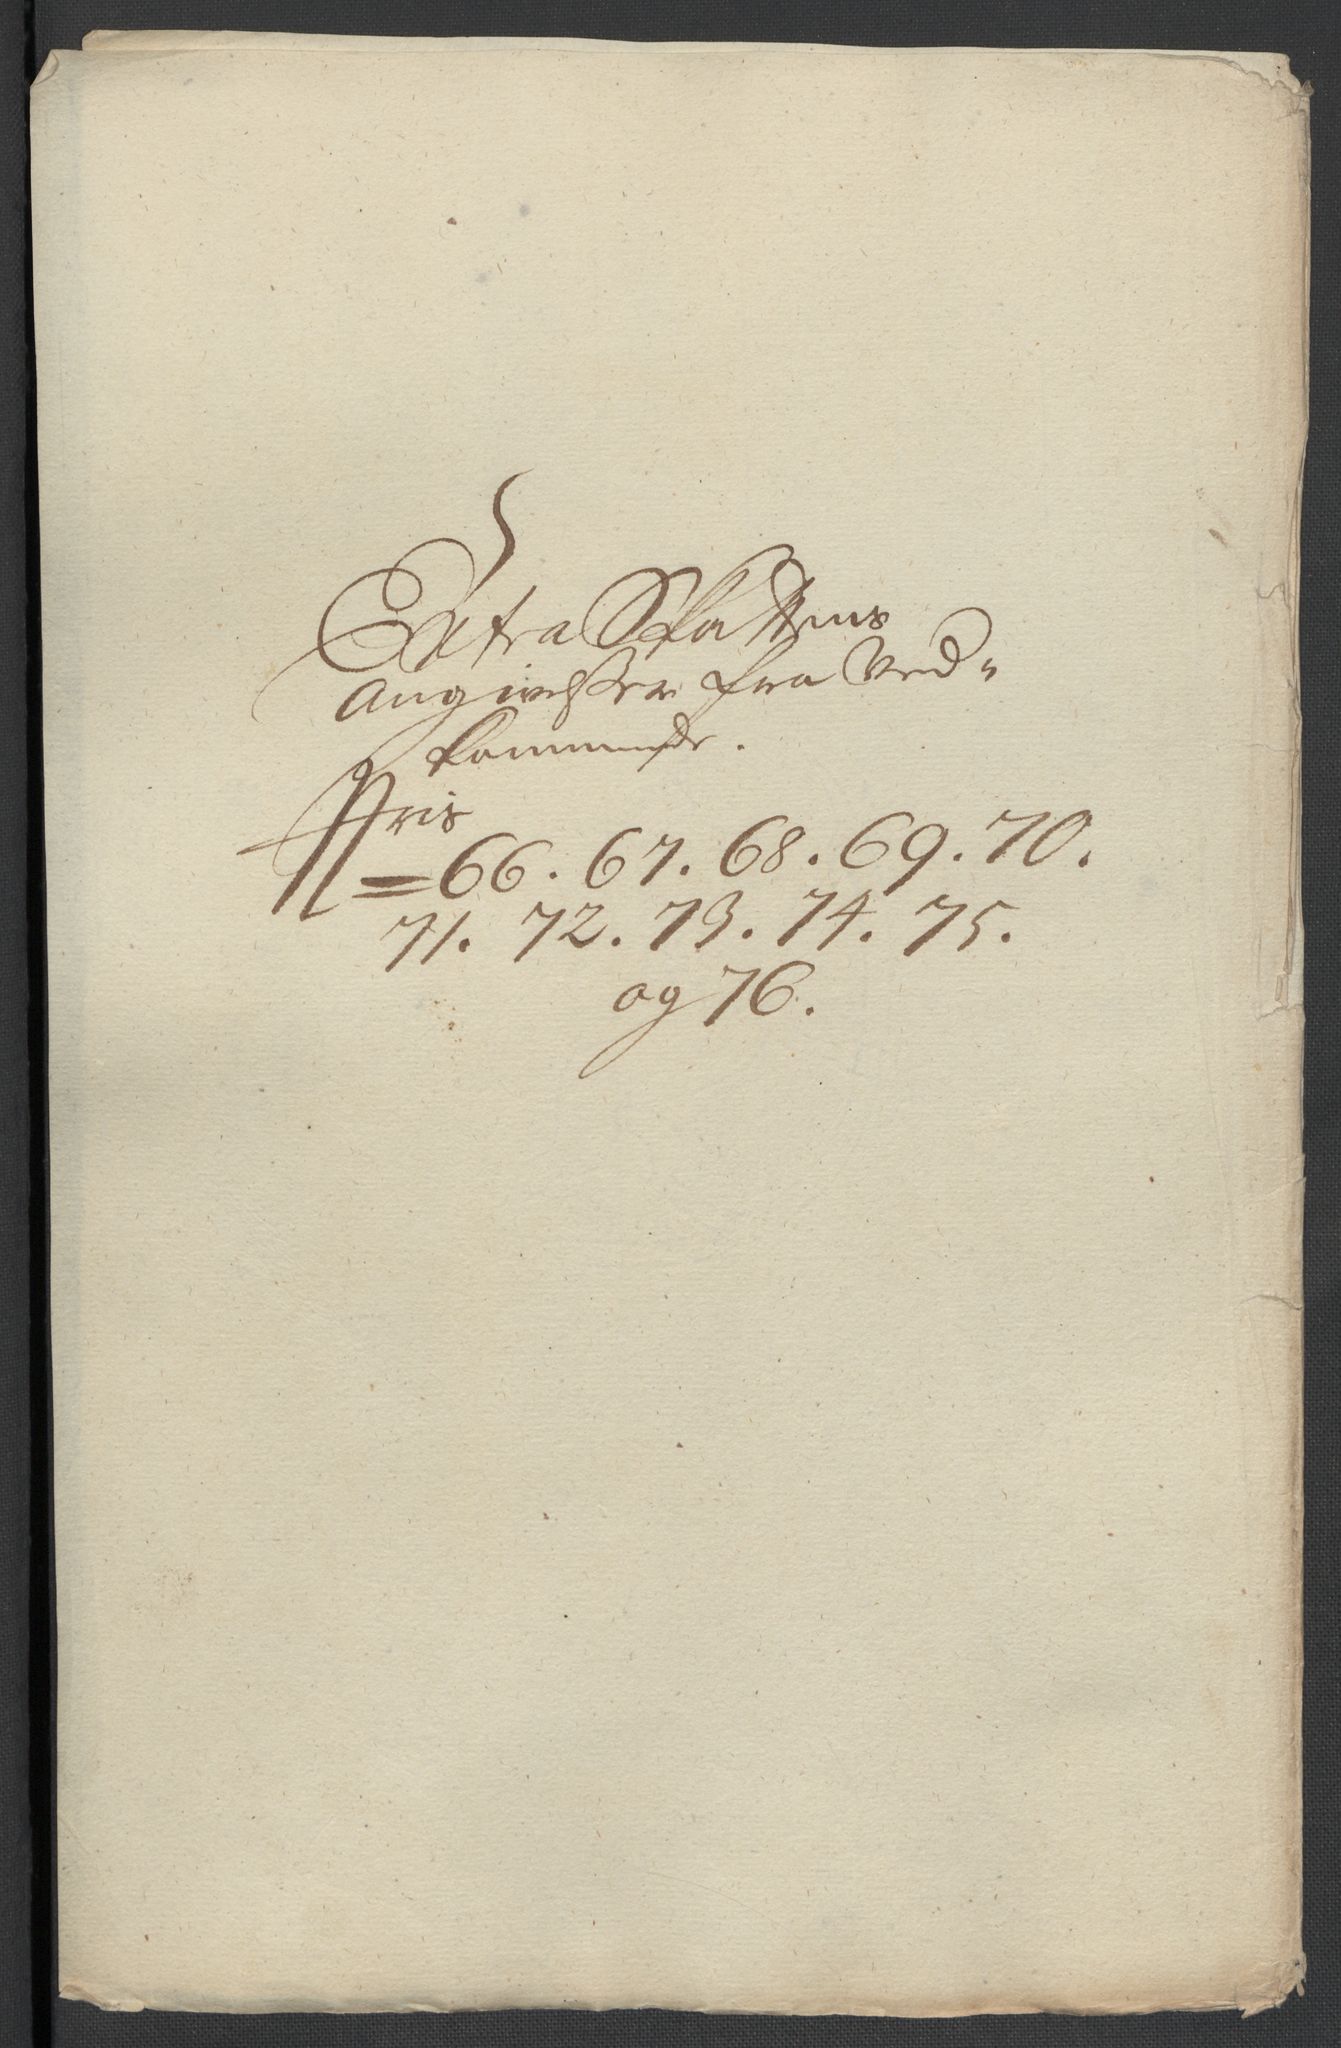 Extra Skattens
Angivelser fra Ved-
kommende.
Nris
= 66. 67. 68. 69. 70.
71. 72. 73. 74. 75.
og 76.